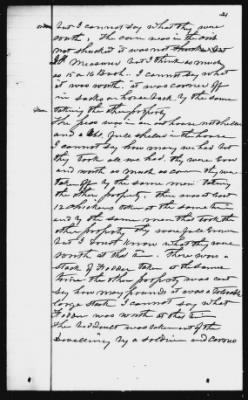 but I cannot say what they were
worth, The corn was in the crib
not shucked it was not
Measured but I think as much
as 15 or 16 Bush. I cannot say what
it was worth. it was carried off
in sacks on horse back by the same
taking the other property
The peas was in an out house not shelled
and a few shelled in the house
I cannot say how many we had but
they took all we had. they were Cow
and worth as much as corn they was
taken off by the same men taking
the other property. the was about
12 chickens taken at the same time
and by the same men that took the
other property they were grown
but I dont know what they were
worth at that time. There was a
stack of Fodder taken at the same
time the other property was cant
say how many pounds it was a tolerable
large stack I cannot say what
Fodder was worth at that time
The was taken out of the
by a soldier and carried